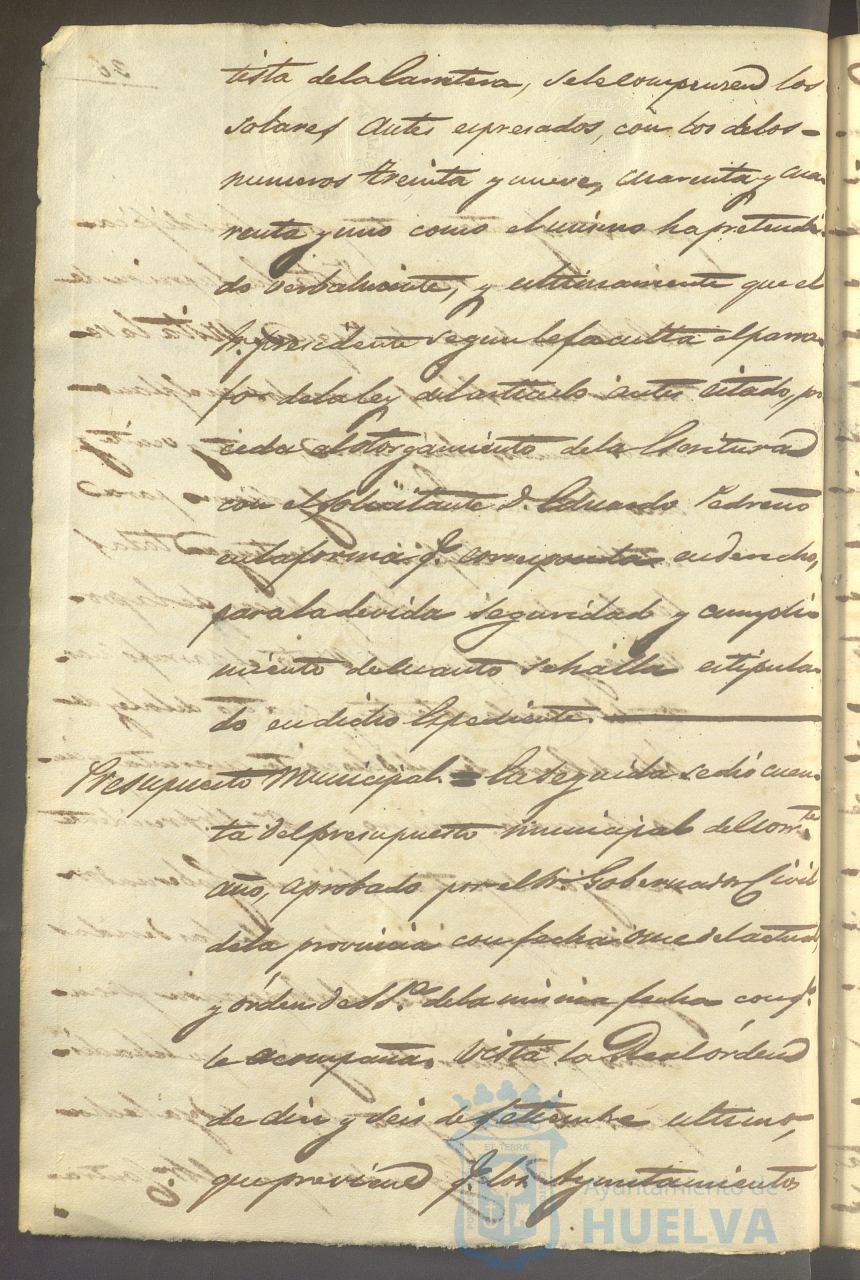 tista de la Carretera, se le compensen los
solares antes espresados, con los de los
numeros treinta y nueve, cuarenta y cua-
renta y uno como el mismo ha pretendi-
do verbalmente, y ultimamente que el
Sr. presidente segun le faculta el parra-
fo de la ley del articulo antes citado, pro
ceda al otorgamiento de la Escritura
con el solicitante D. Eduardo Pedreño
en la forma q.e corresponda en derecho,
para la devida seguridad y cumpli-
miento de cuanto se halla estipula-
do en dicho Expediente.
Presupuesto Municipal = En seguida se dió cuen-
ta del presupuesto municipal del corr.te
año, aprobado por el Sr. Gobernador Civil
de la provincia con fecha once del actual,
y órden de S.S.a de la misma fecha con q.e
le acompaña. Vista la Real órden
de diez y seis de Setiembre ultimo,
que previene q.e los Ayuntamientos
Ayuntamiento de
HUELVA